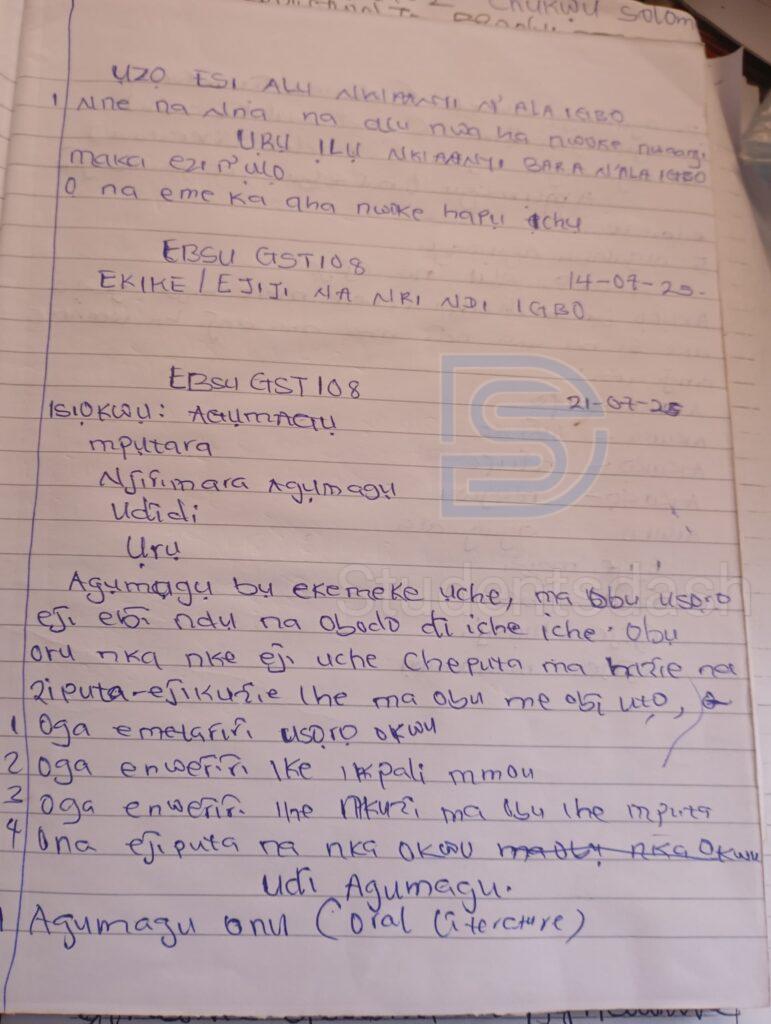 CHUKWU SOLOM
ỤZỌ ESI ALỤ NKIRANYI N'ALA IGBO
1 Nne na Nna na alu nwa ha nwoke nwanyi
URU ILỤ NKIRANYI BARA N'ALA IGBO
maka ezi n'ụlọ
O na eme ka gha nwoke hapu ịchụ
EBSU GST108
14-07-25.
EKIKE / EJIJI NA NRI NDI IGBO
EBSU GST108
21-07-25
ISIOKWU: AGUMAGU
mpụtara
Njirimara Agụmagụ
Udidi
Ụrụ
Agụmagụ bu ekemeke uche, ma Obu usoro
eji ebi ndu na obodo di iche iche. Obu
oru nka nke eji uche cheputa ma hazie na
ziputa-ejikuzie Ihe ma obu me obi uto,
1 Oga emetariri usoro okwu
2 Oga enweriri Ike ikpali mmou
3 Oga enweriri Ihe Nkuzi ma Obu Ihe mputa
4 Ona ejiputa na nka Okwu ma Obu nka Okwu
Udi Agumagu.
1 Agumagu onu (Oral literature)
Studentsdash